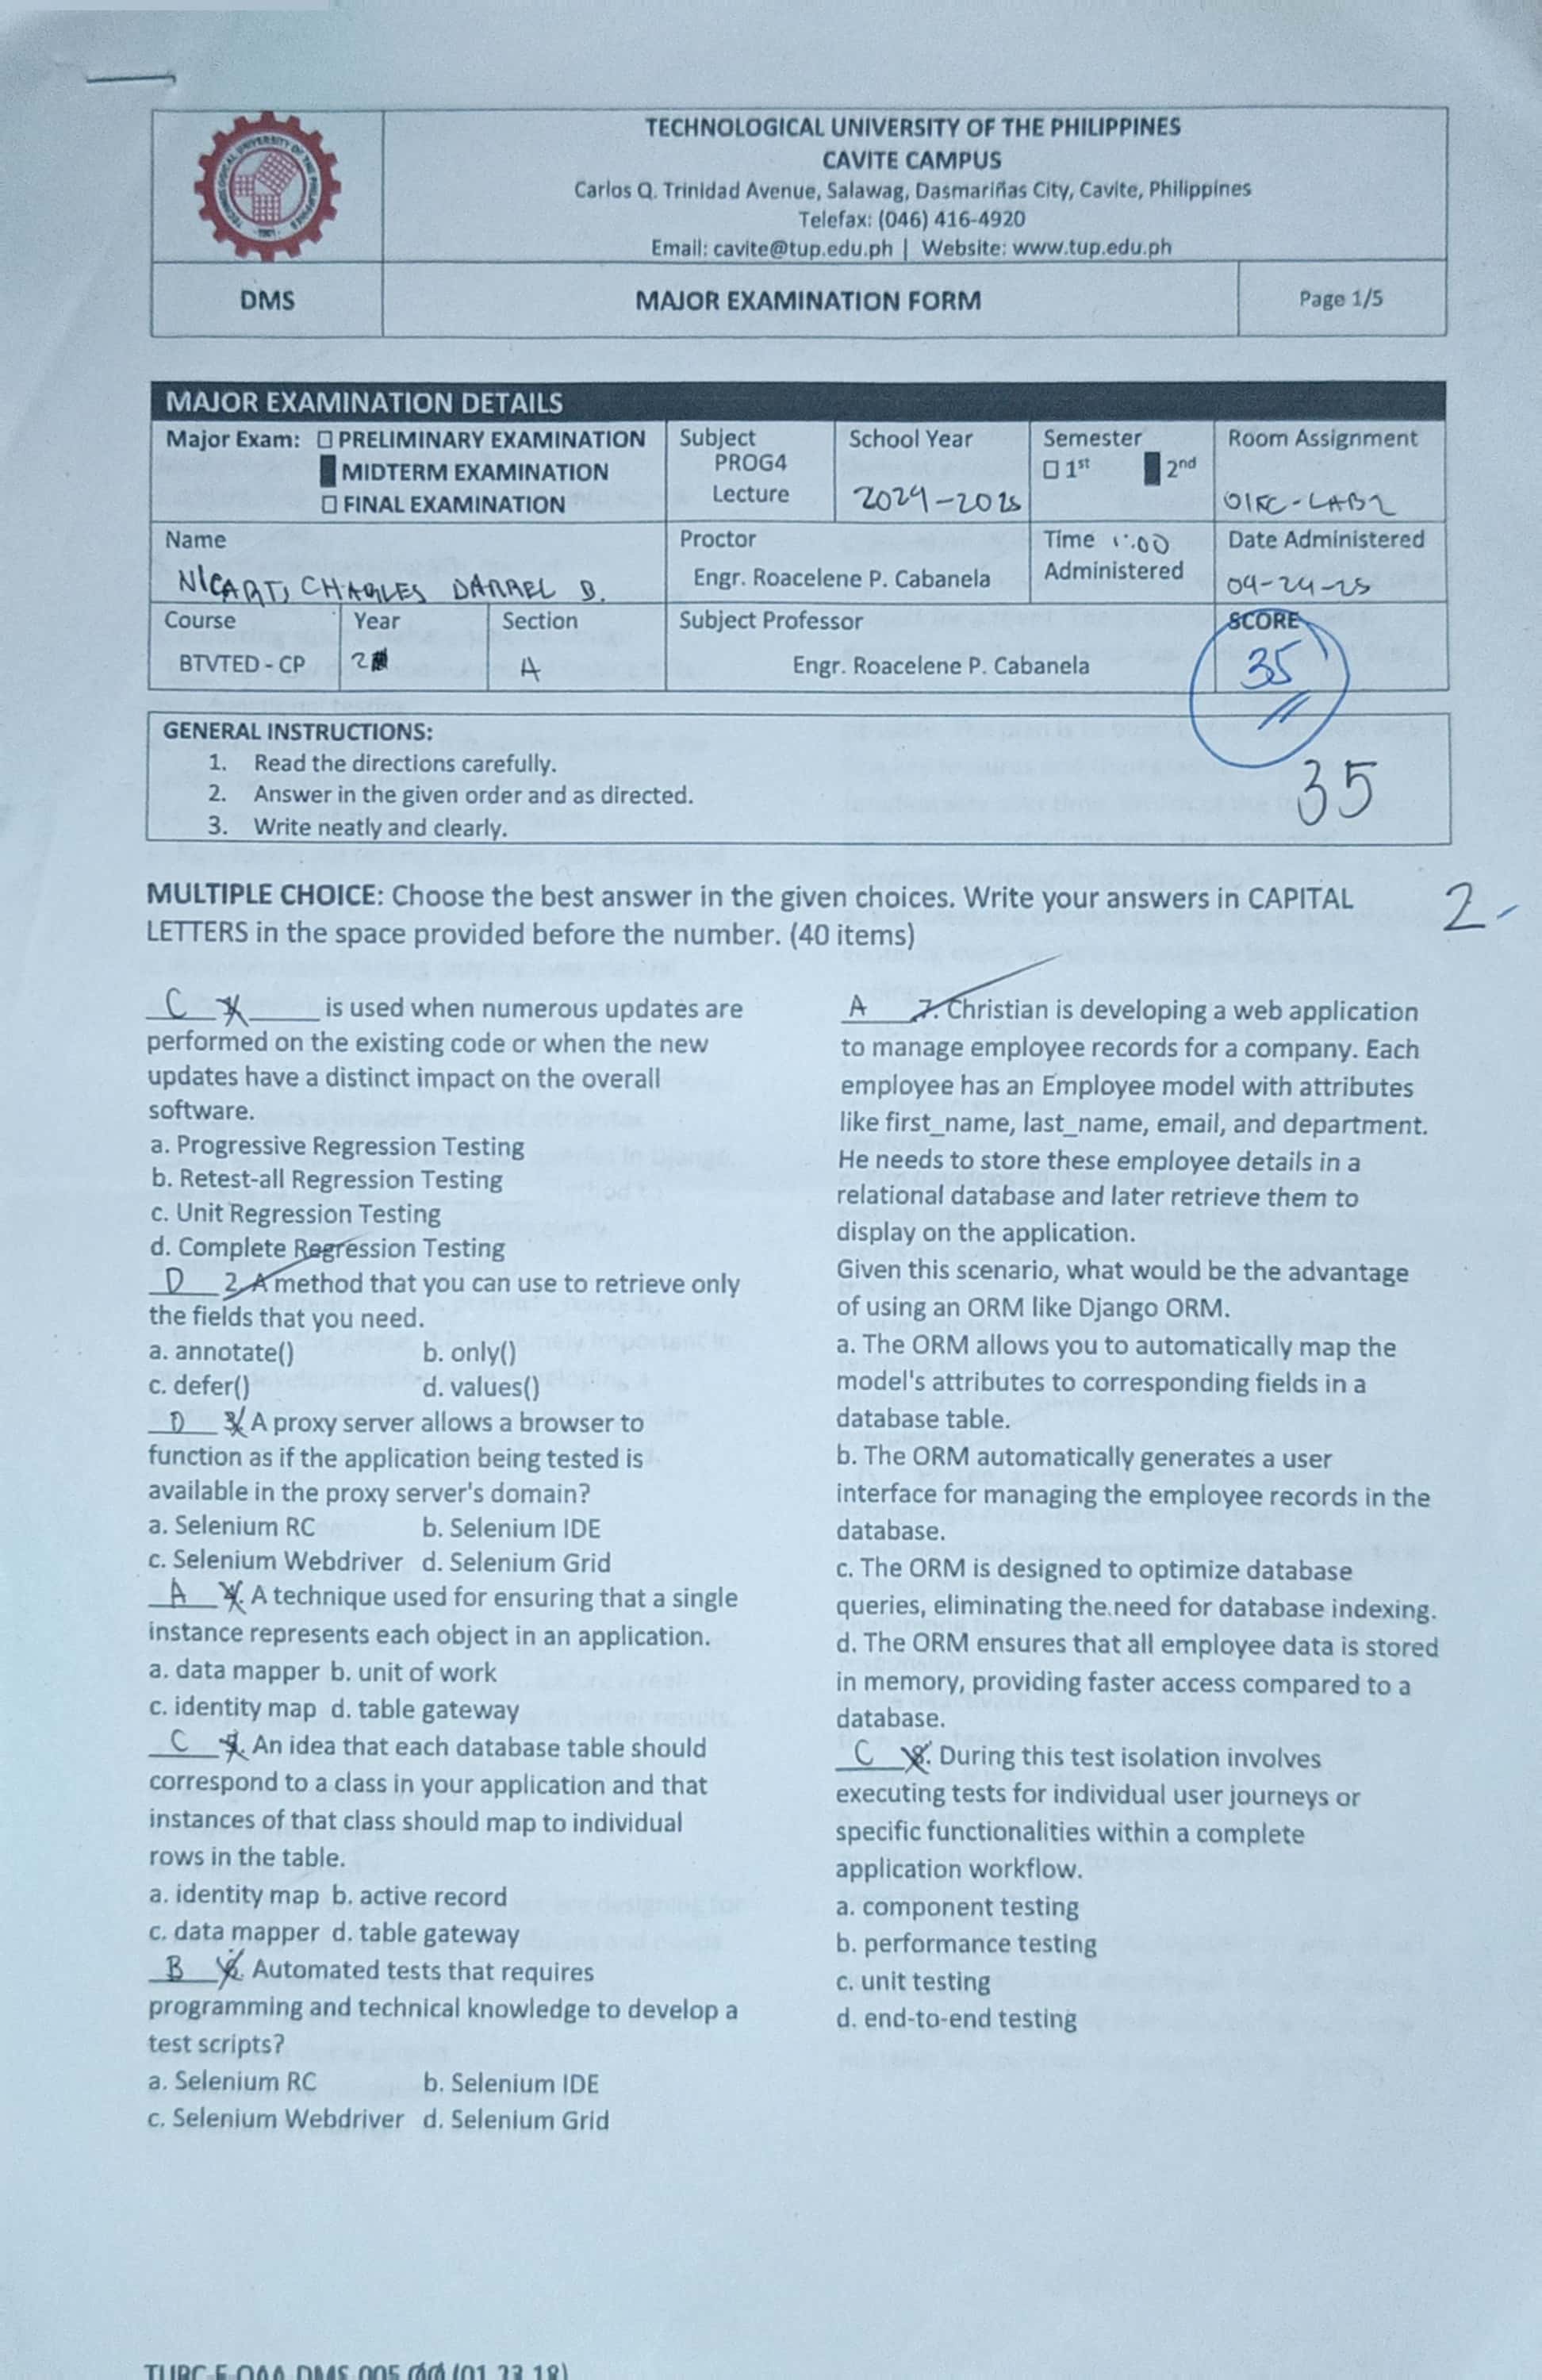 TECHNOLOGICAL UNIVERSITY OF THE PHILIPPINES
CAVITE CAMPUS
Carlos Q. Trinidad Avenue, Salawag, Dasmariñas City, Cavite, Philippines
Telefax: (046) 416-4920
Email: cavite@tup.edu.ph | Website: www.tup.edu.ph
DMS
MAJOR EXAMINATION FORM
Page 1/5
MAJOR EXAMINATION DETAILS
Major Exam: ☐ PRELIMINARY EXAMINATION
MIDTERM EXAMINATION
☐ FINAL EXAMINATION
Subject
PROG4
Lecture
School Year
2024-2025
Semester
☐ 1st 2nd
Room Assignment
Name
NICART, CHARLES DARREL B.
Proctor
Engr. Roacelene P. Cabanela
Time 1:00
Administered
Date Administered
04-24-25
Course
BTVTED - CP
Year
2
Section
A
Subject Professor
Engr. Roacelene P. Cabanela
SCORE
35
GENERAL INSTRUCTIONS:
1. Read the directions carefully.
2. Answer in the given order and as directed.
3. Write neatly and clearly.
35
MULTIPLE CHOICE: Choose the best answer in the given choices. Write your answers in CAPITAL
LETTERS in the space provided before the number. (40 items)
2
C 1. ______ is used when numerous updates are
performed on the existing code or when the new
updates have a distinct impact on the overall
software.
a. Progressive Regression Testing
b. Retest-all Regression Testing
c. Unit Regression Testing
d. Complete Regression Testing
D 2. A method that you can use to retrieve only
the fields that you need.
a. annotate() b. only()
c. defer() d. values()
D 3. A proxy server allows a browser to
function as if the application being tested is
available in the proxy server's domain?
a. Selenium RC b. Selenium IDE
c. Selenium Webdriver d. Selenium Grid
A 4. A technique used for ensuring that a single
instance represents each object in an application.
a. data mapper b. unit of work
c. identity map d. table gateway
C 5. An idea that each database table should
correspond to a class in your application and that
instances of that class should map to individual
rows in the table.
a. identity map b. active record
c. data mapper d. table gateway
B 6. Automated tests that requires
programming and technical knowledge to develop a
test scripts?
a. Selenium RC b. Selenium IDE
c. Selenium Webdriver d. Selenium Grid
A 7. Christian is developing a web application
to manage employee records for a company. Each
employee has an Employee model with attributes
like first_name, last_name, email, and department.
He needs to store these employee details in a
relational database and later retrieve them to
display on the application.
Given this scenario, what would be the advantage
of using an ORM like Django ORM.
a. The ORM allows you to automatically map the
model's attributes to corresponding fields in a
database table.
b. The ORM automatically generates a user
interface for managing the employee records in the
database.
c. The ORM is designed to optimize database
queries, eliminating the need for database indexing.
d. The ORM ensures that all employee data is stored
in memory, providing faster access compared to a
database.
C 8. During this test isolation involves
executing tests for individual user journeys or
specific functionalities within a complete
application workflow.
a. component testing
b. performance testing
c. unit testing
d. end-to-end testing